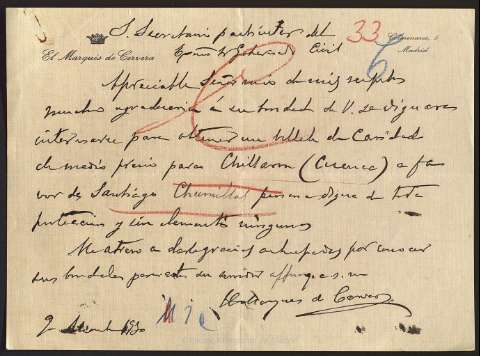 S. Secretario particular del
33
Exmo Sr Gobernador Civil
El Marqués de Cervera
Colmenares, 5
Madrid
6
Apreciable Señor mio de mis respetos
mucho agradeceria á su bondad de V. se dignara
interesarse para obtener un billete de Caridad
de medio precio para Chillaron (Cuenca) a fa
vor de Santiago Chumillas persona digna de toda
proteccion y sin elementos ningunos
Me atrevo a dar le gracias anticipadas por conocer
sus bondades para este su amigo affmo q e. s. m
El Marques de Cervera
9 1930